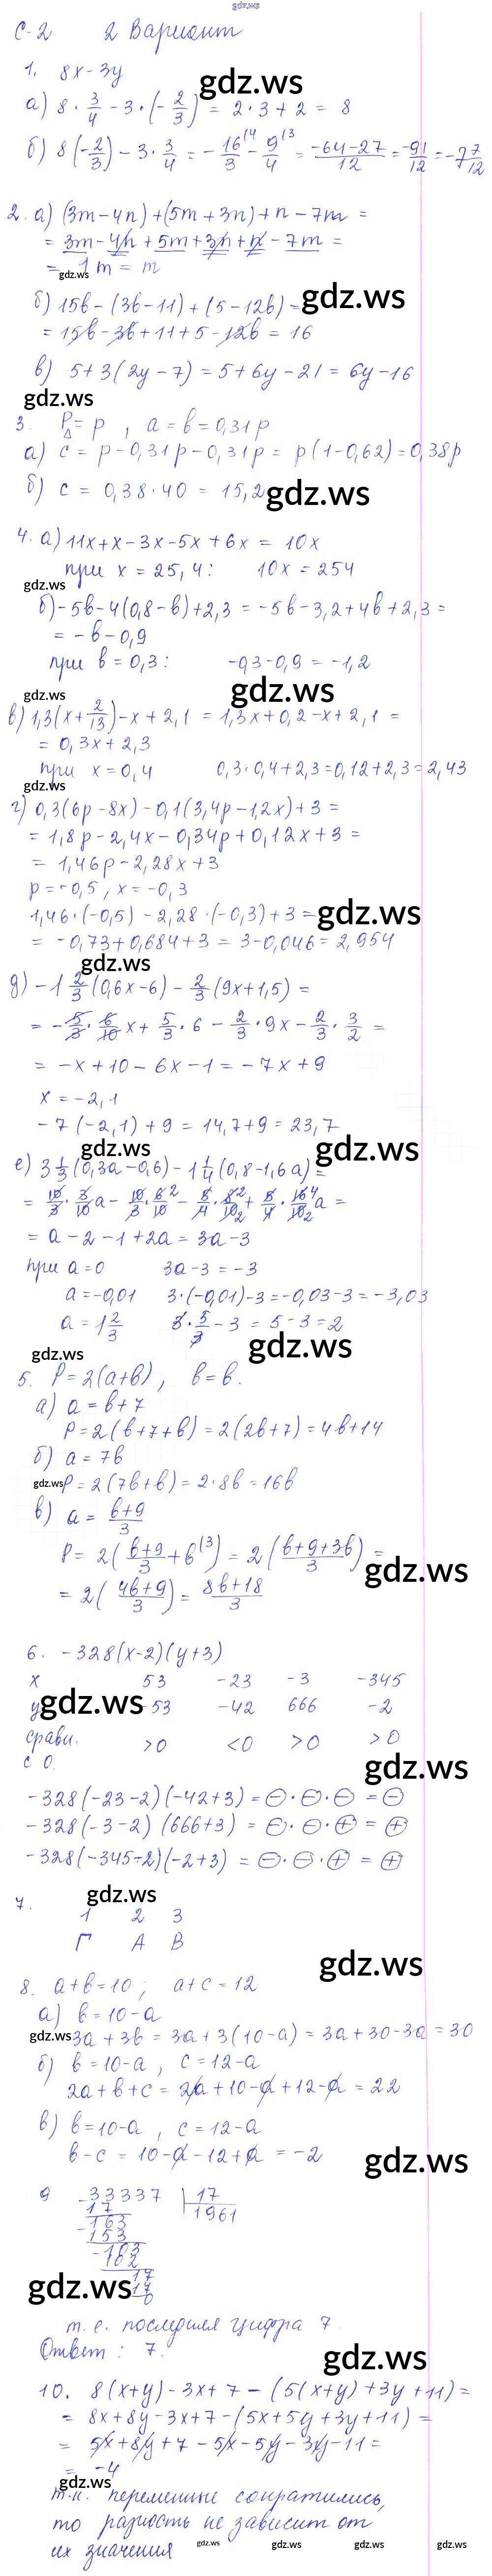 gdz.ws
С-2 2 Вариант
1. 8x-3y
gdz.ws
а) 8·3/4 - 3·(-2/3) = 2·3+2 = 8
б) 8(-2/3) - 3·3/4 = -16/3(4 - 9/4(3 = (-64-27)/12 = -91/12 = -7 7/12
2. а) (3m-4n)+(5m+3n)+n-7m =
= 3m-4n+5m+3n+n-7m =
= 1m = m
gdz.ws
б) 15b-(3b-11)+(5-12b)=
gdz.ws
= 15b-3b+11+5-12b = 16
в) 5+3(2y-7) = 5+6y-21 = 6y-16
gdz.ws
3. P△=p, a=b=0,31p
а) c = p-0,31p-0,31p = p(1-0,62)=0,38p
б) c = 0,38·40 = 15,2
gdz.ws
4. а) 11x+x-3x-5x+6x = 10x
при x = 25,4: 10x = 254
gdz.ws
б) -5b-4(0,8-b)+2,3 = -5b-3,2+4b+2,3 =
= -b-0,9
при b = 0,3: -0,3-0,9 = -1,2
gdz.ws
gdz.ws
в) 1,3(x+2/13)-x+2,1 = 1,3x+0,2-x+2,1 =
= 0,3x+2,3
при x=0,4 0,3·0,4+2,3=0,12+2,3=2,43
gdz.ws
г) 0,3(6p-8x)-0,1(3,4p-1,2x)+3 =
= 1,8p-2,4x-0,34p+0,12x+3 =
= 1,46p-2,28x+3
p=-0,5, x=-0,3
1,46·(-0,5)-2,28·(-0,3)+3 =
gdz.ws
= -0,73+0,684+3 = 3-0,046=2,954
gdz.ws
д) -1 2/3(0,6x-6)-2/3(9x+1,5) =
= -5/3·6/10x+5/3·6-2/3·9x-2/3·3/2 =
= -x+10-6x-1 = -7x+9
x = -2,1
-7(-2,1)+9 = 14,7+9=23,7
gdz.ws
gdz.ws
е) 3 1/3(0,3a-0,6)-1 1/4(0,8-1,6a)=
= 10/3·3/10a-10/3·6/10 2-5/4·8/10 2 2+5/4·16/10 4 2a =
= a-2-1+2a = 3a-3
при a=0 3a-3 = -3
a=-0,01 3·(-0,01)-3=-0,03-3=-3,03
a=1 2/3 3·5/3-3 = 5-3=2
gdz.ws
gdz.ws
5. P=2(a+b), b=b.
а) a=b+7
P=2(b+7+b)=2(2b+7)=4b+14
б) a=7b
gdz.ws
P=2(7b+b)=2·8b=16b
в) a=(b+9)/3
P=2((b+9)/3+b(3)=2((b+9+3b)/3)=
gdz.ws
=2((4b+9)/3)=(8b+18)/3
6. -328(x-2)(y+3)
x 53 -23 -3 -345
gdz.ws
y -53 -42 666 -2
сравн. >0 <0 >0 >0
с 0.
gdz.ws
-328(-23-2)(-42+3)=⊖·⊖·⊖=⊖
-328(-3-2)(666+3)=⊖·⊖·⊕=⊕
-328(-345-2)(-2+3)=⊖·⊖·⊕=⊕
7.
gdz.ws
1 2 3
Г А В
gdz.ws
8. a+b=10; a+c=12
а) b=10-a
gdz.ws
3a+3b=3a+3(10-a)=3a+30-3a=30
б) b=10-a, c=12-a
2a+b+c=2a+10-a+12-a=22
в) b=10-a, c=12-a
b-c=10-a-12+a=-2
gdz.ws
9 -33337 | 17
17 1961
-163
153
-103
102
17
17
0
gdz.ws
т.е. последняя цифра 7.
Ответ: 7.
gdz.ws
10. 8(x+y)-3x+7-(5(x+y)+3y+11)=
= 8x+8y-3x+7-(5x+5y+3y+11)=
= 5x+8y+7-5x-5y-3y-11=
= -4
gdz.ws
т.к. переменные сократились,
то разность не зависит от
их значения
gdz.ws gdz.ws gdz.ws gdz.ws